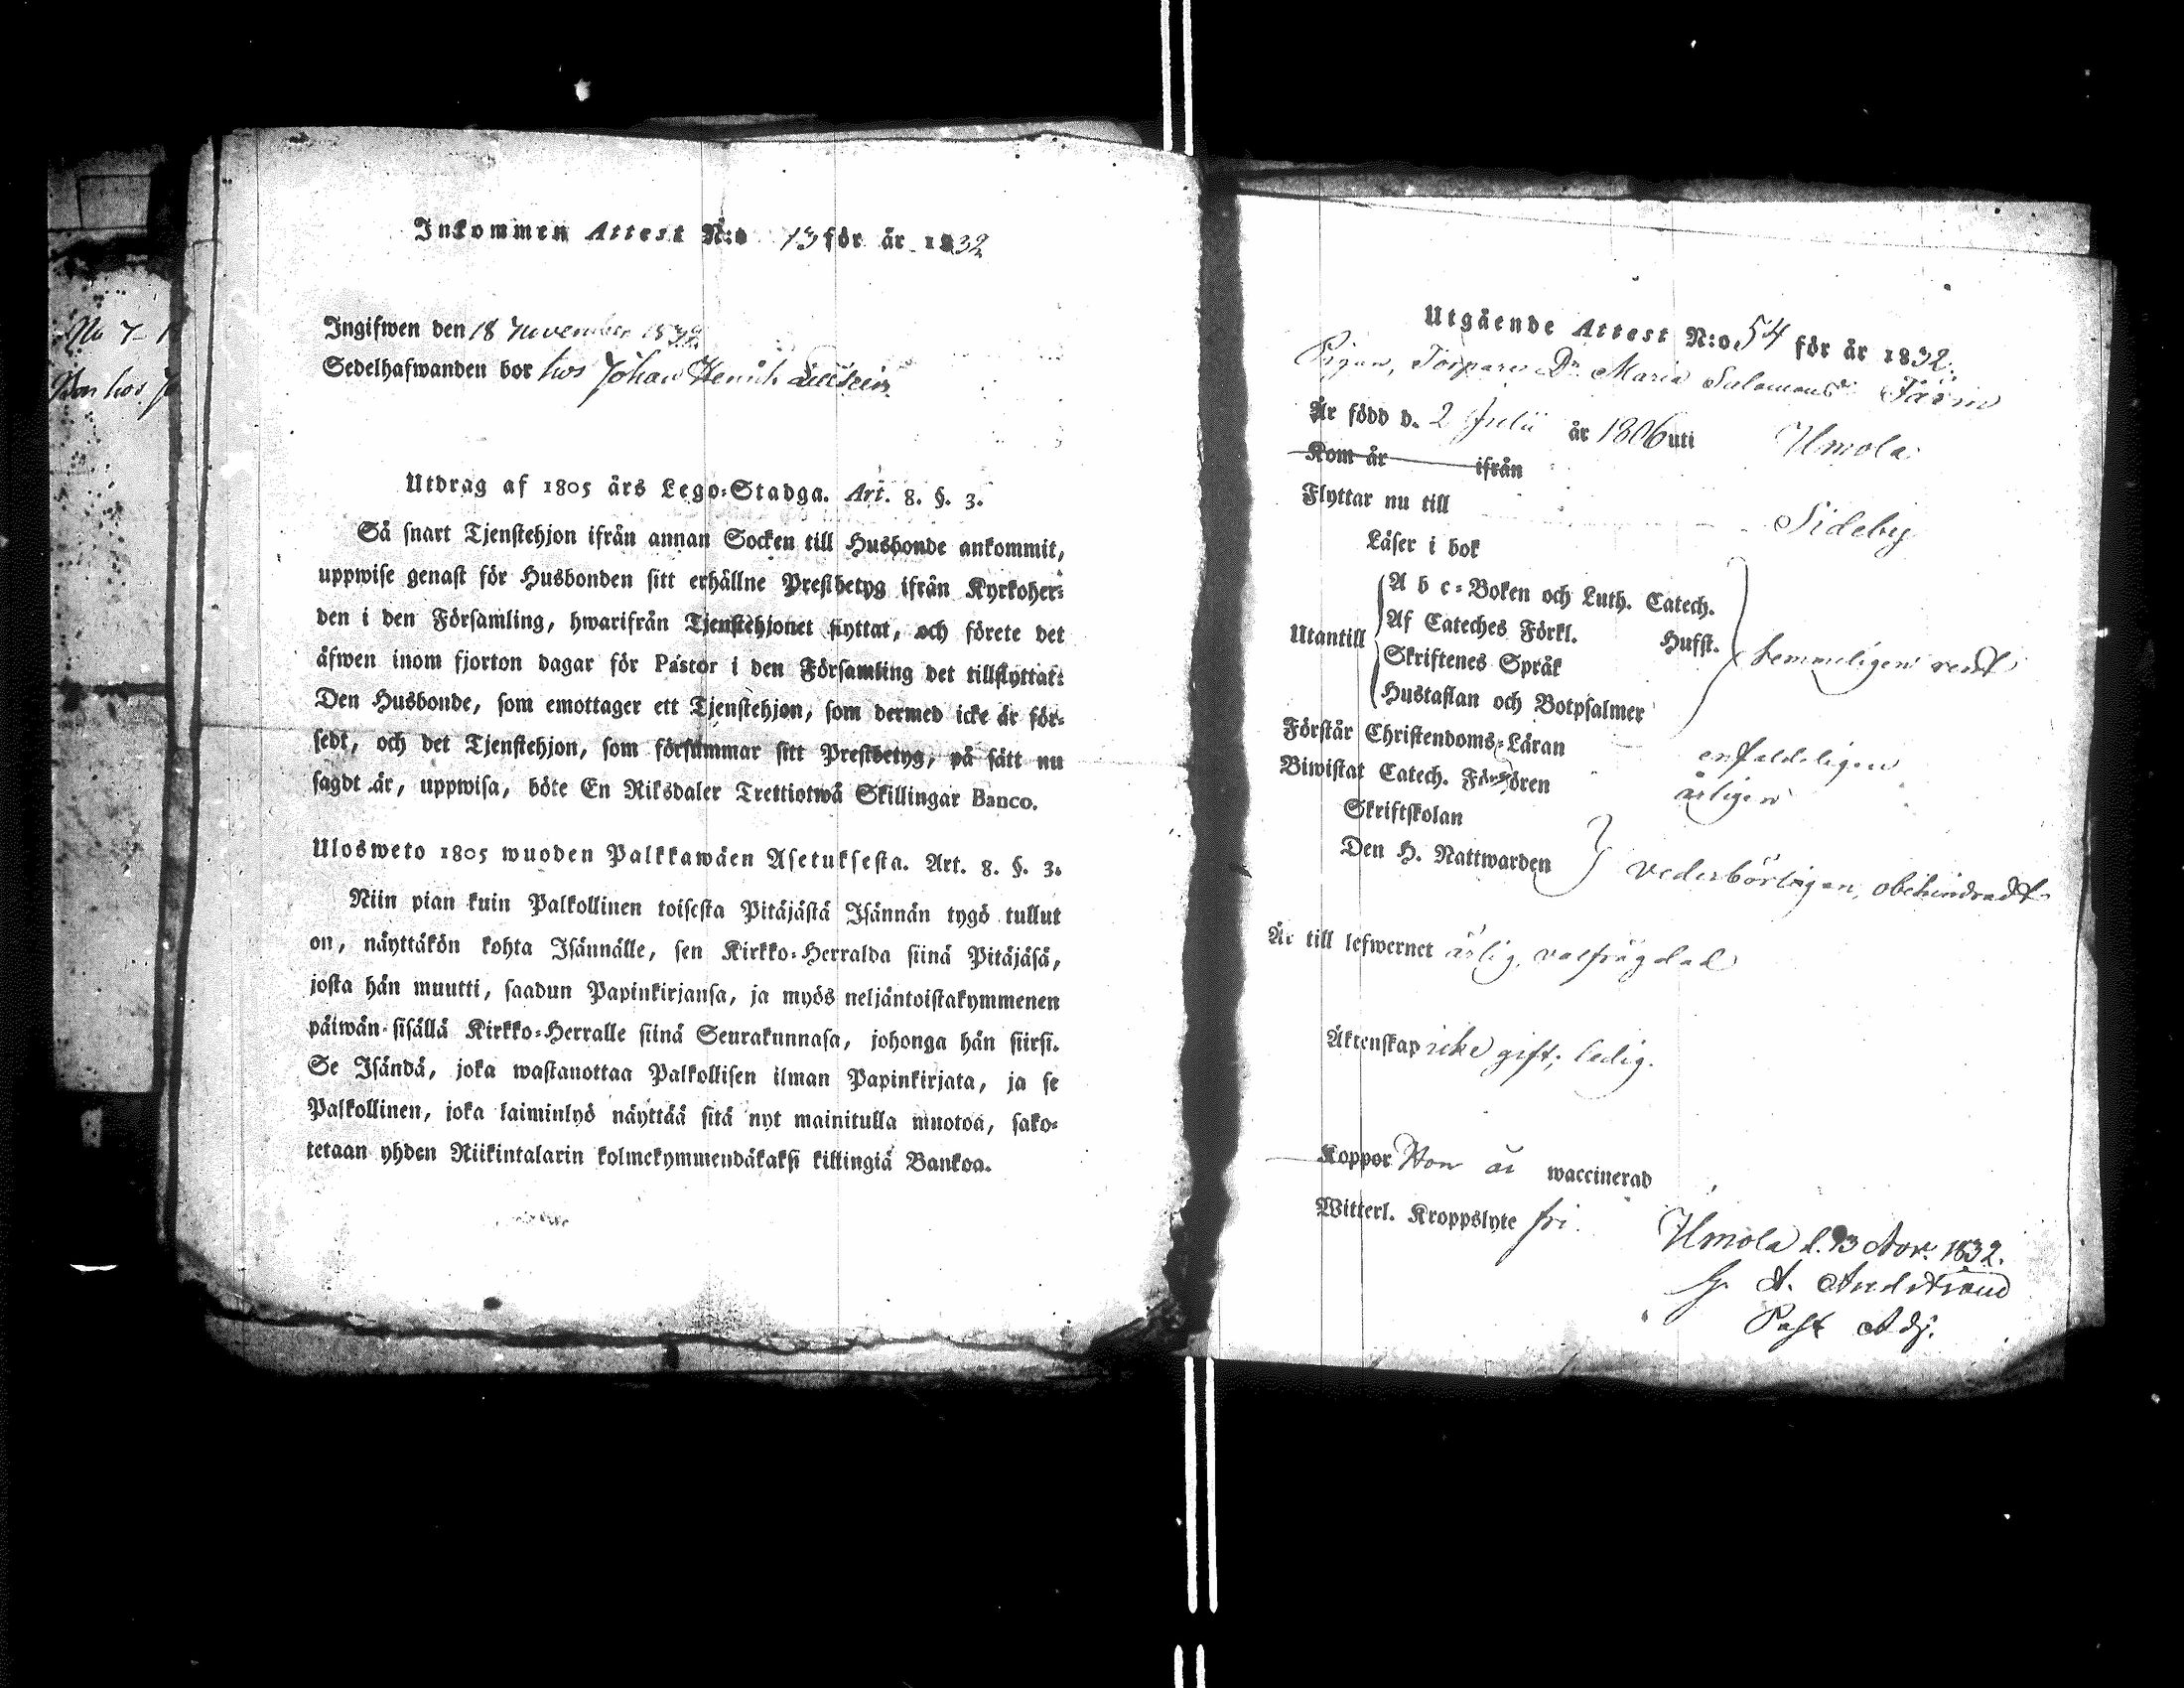 No 7
Bor hos
Inkommen Attest N:o 13 för år 1832
Ingifwen den 18 November 1832
Sedelhafwanden bor hos Johan Henrik
Utdrag af 1805 års Lego-Stadga. Art. 8. §. 3.
Så snart Tjenstehjon ifrån annan Socken till Husbonde ankommit,
uppwise genast för Husbonden sitt erhållne Prestbetyg ifrån Kyrkoher-
den i den Församling, hwarifrån Tjenstehjonet flyttat, och förete det
äfwen inom fjorton dagar för Pastor i den Församling det tillflyttat:
Den Husbonde, som emottager ett Tjenstehjon, som dermed icke är för-
sedt, och det Tjenstehjon, som försummar sitt Prestbetyg, på sätt nu
sagdt är, uppwisa, böte En Riksdaler Trettiotwå Skillingar Banco.
Ulosweto 1805 wuoden Palkkawäen Asetuksesta. Art. 8. §. 3.
Niin pian kuin Palkollinen toisesta Pitäjästä Isännän tygö tullut
on, näyttäkön kohta Isännälle, sen Kirkko-Herralda siinä Pitäjäsä,
josta hän muutti, saadun Papinkirjansa, ja myös neljäntoistakymmenen
päiwän sisällä Kirkko-Herralle siinä Seurakunnasa, johonga hän siirsi.
Se Isändä, joka wastanottaa Palkollisen ilman Papinkirjata, ja se
Palkollinen, joka laiminlyö näyttää sitä nyt mainitulla muotoa, sako-
tetaan yhden Riikintalarin kolmekymmendäkaksi killingiä Bankoa.
Utgående Attest N:o 54 för år 1832.
Pigan, Torpare Dr Maria Salomonsdr
Är född d. 2 Julii år 1806 uti Ilmola
Kom år ifrån
Flyttar nu till Sideby
Läser i bok
Utantill
A b c-Boken och Luth. Catech.
Af Cateches Förkl. Hufst.
Skriftenes Språk
Hustaflan och Botpsalmer
hemmeligen redt
Förstår Christendoms-Läran enfaldeligen
Biwistat Catech. Förhören årligen
Skriftskolan
Den H. Nattwarden
vederbörligen, obehindradt
Är till lefwernet ärlig, välfrägdad
Äktenskap icke gift; ledig.
Koppor Hon är waccinerad
Witterl. Kroppslyte fri.
Ilmola d. 13 Nov. 1832.
G. A.
Past Adj.